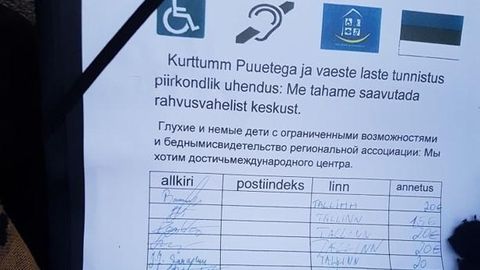 Kurttumm Puuetega ja vaeste laste tunnistus
piirkondlik uhendus: Me tahame saavutada
rahvusvahelist keskust.
Глухие и немые дети с ограниченными возможностями
и беднымисвидетельство региональной ассоциации: Мы
хотим достичьмеждународного центра.
allkiri postiindeks linn annetus
TALLINN 20€
TALLINN 15€
TALLINN 20€
TALLINN 20€
TALLINN 20